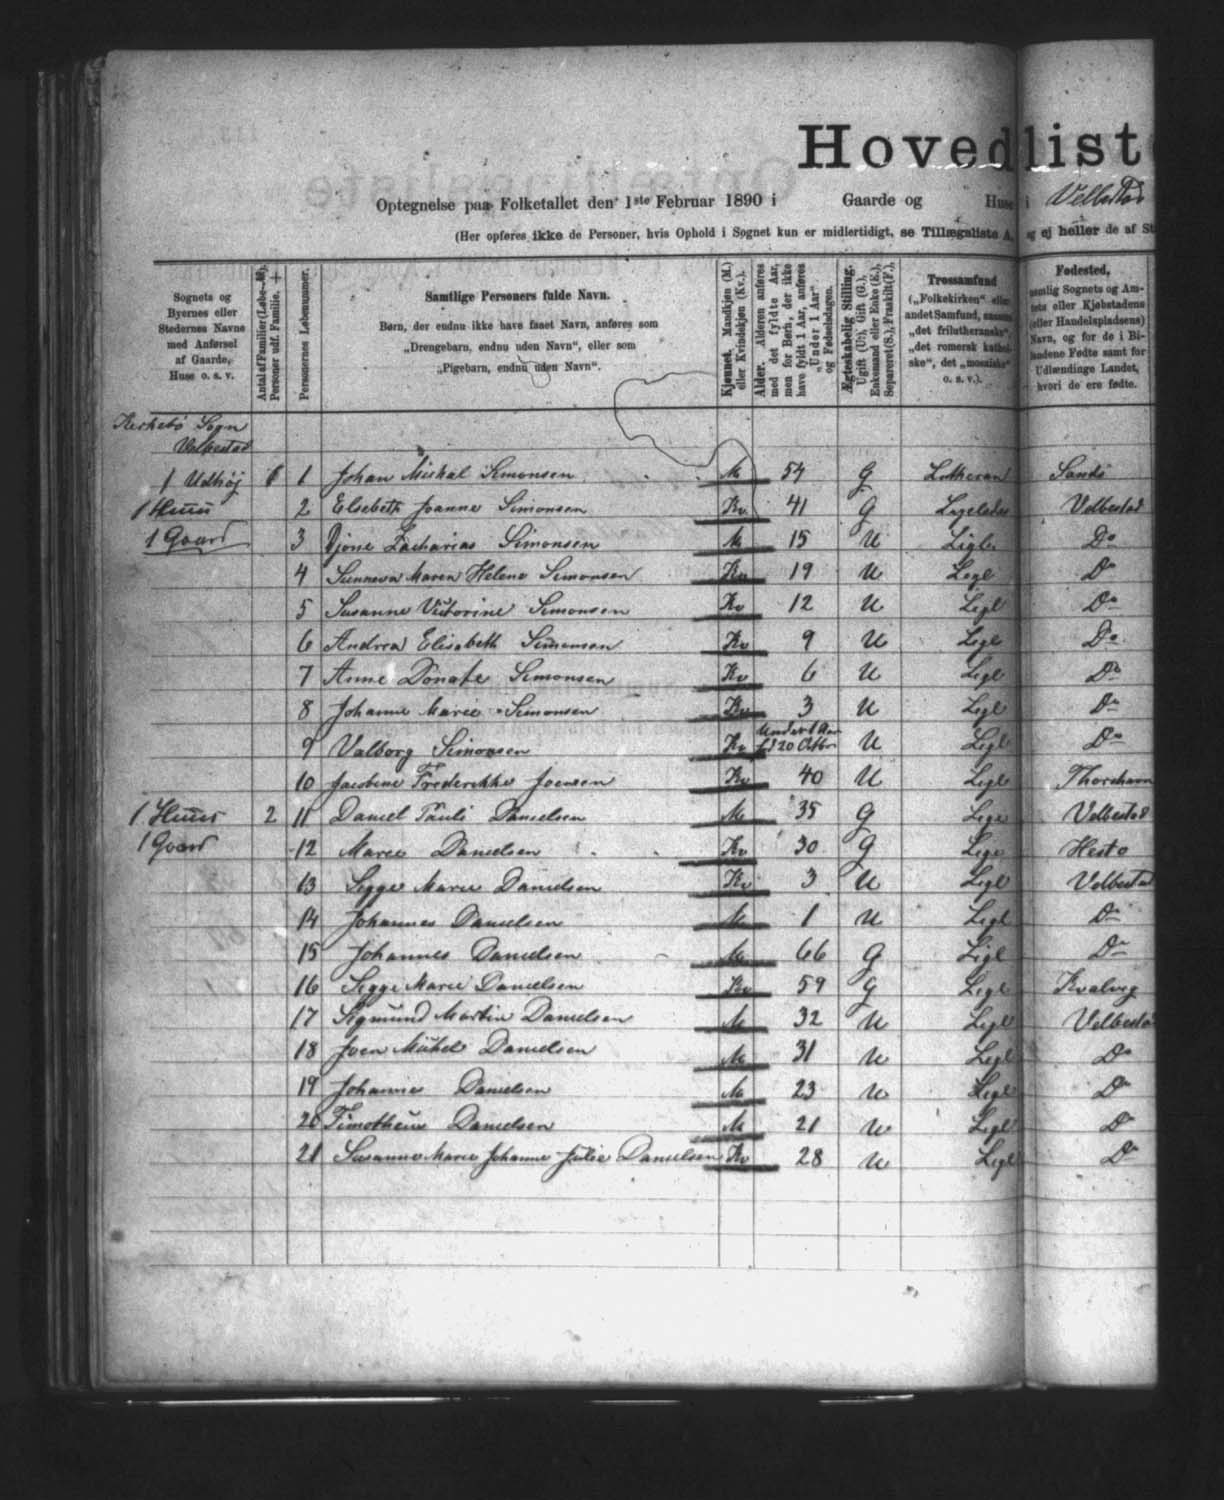 Hovedlist
Optegnelse paa Folketallet den 1ste Februar 1890 i Gaarde og Huse i Velbestad
(Her opføres ikke de Personer, hvis Ophold i Sognet kun er midlertidigt, se Tillægsliste A, og ej heller de af St
Sognets og
Byernes eller
Stedernes Navne
med Anførsel
af Gaarde,
Huse o. s. v.
Antal af Familier (Løbe-№).
Personer udf. Familie. +
Personernes Løbenummer.
Samtlige Personers fulde Navn.
Børn, der endnu ikke have faaet Navn, anføres som
„Drengebarn, endnu uden Navn“, eller som
„Pigebarn, endnu uden Navn“.
Kjønnet. Mandkjøn (M.)
eller Kvindekjøn (Kv.).
Alder. Alderen anføres
med det fyldte Aar,
men for Børn, der ikke
have fyldt 1 Aar, anføres
„Under 1 Aar“
og Fødselsdagen.
Ægteskabelig Stilling.
Ugift (U.), Gift (G.),
Enkemand eller Enke (E.),
Separeret (S.), Fraskilt (F.).
Trossamfund
(„Folkekirken“ eller
andet Samfund, saasom
„det frilutheranske“,
„det romersk kathol-
ske“, det „mosaiske“
o. s. v.).
Fødested,
nemlig Sognets og Am-
tets eller Kjøbstadens
(eller Handelspladsens)
Navn, og for de i Bi-
landene Fødte samt for
Udlændinge Landet,
hvori de ere fødte.
Sogn
Velbestad
1 1 Johan Michal Simonsen M 54 G Lutheran Sandø
1 Huus 2 Elsebeth Joanne Simonsen Kv 41 G Ligeledes Velbestad
1 Gaard 3 Djone Zacharias Simonsen M 15 U Ligl. Do
4 Sunneva Maren Helene Simonsen Kv 19 U Ligl Do
5 Susanne Victorine Simonsen Kv 12 U Ligl Do
6 Andrea Elisabeth Simonsen Kv 9 U Ligl Do
7 Anne Donate Simonsen Kv 6 U Ligl Do
8 Johanne Marie Simonsen Kv 3 U Ligl Do
9 Valborg Simonsen Kv Under 1 Aar fd 20 Octbr U Ligl Do
10 Jacobine Frederikke Joensen Kv 40 U Ligl Thorshavn
1 Huus 2 11 Daniel Pauli Danielsen M 35 G Lige Velbestad
1 Gaard 12 Maree Danielsen Kv 30 G Lige Hestø
13 Segge Marie Danielsen Kv 3 U Ligl Velbestad
14 Johannes Danielsen M 1 U Ligl Do
15 Johannes Danielsen M 66 G Ligl Do
16 Segge Marie Danielsen Kv 59 G Ligl Kvalvig
17 Sigmund Martin Danielsen M 32 U Ligl Velbestad
18 Joen Mikkel Danielsen M 31 U Ligl Do
19 Danielsen M 23 U Ligl Do
20 Timotheus Danielsen M 21 U Ligl Do
21 Susanne Marie Johanne Julie Danielsen Kv 28 U Ligl Do